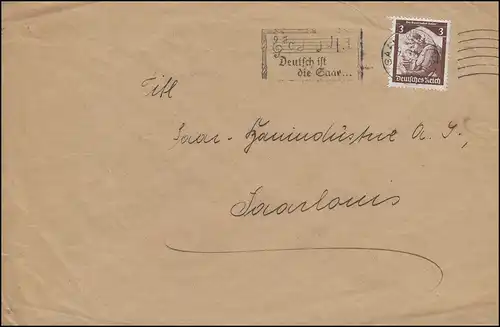 3 3
Deutsches Reich
Deutsch ist
die Saar...
Titl
Saar-Hanindüstrie A. G.,
Saarlouis